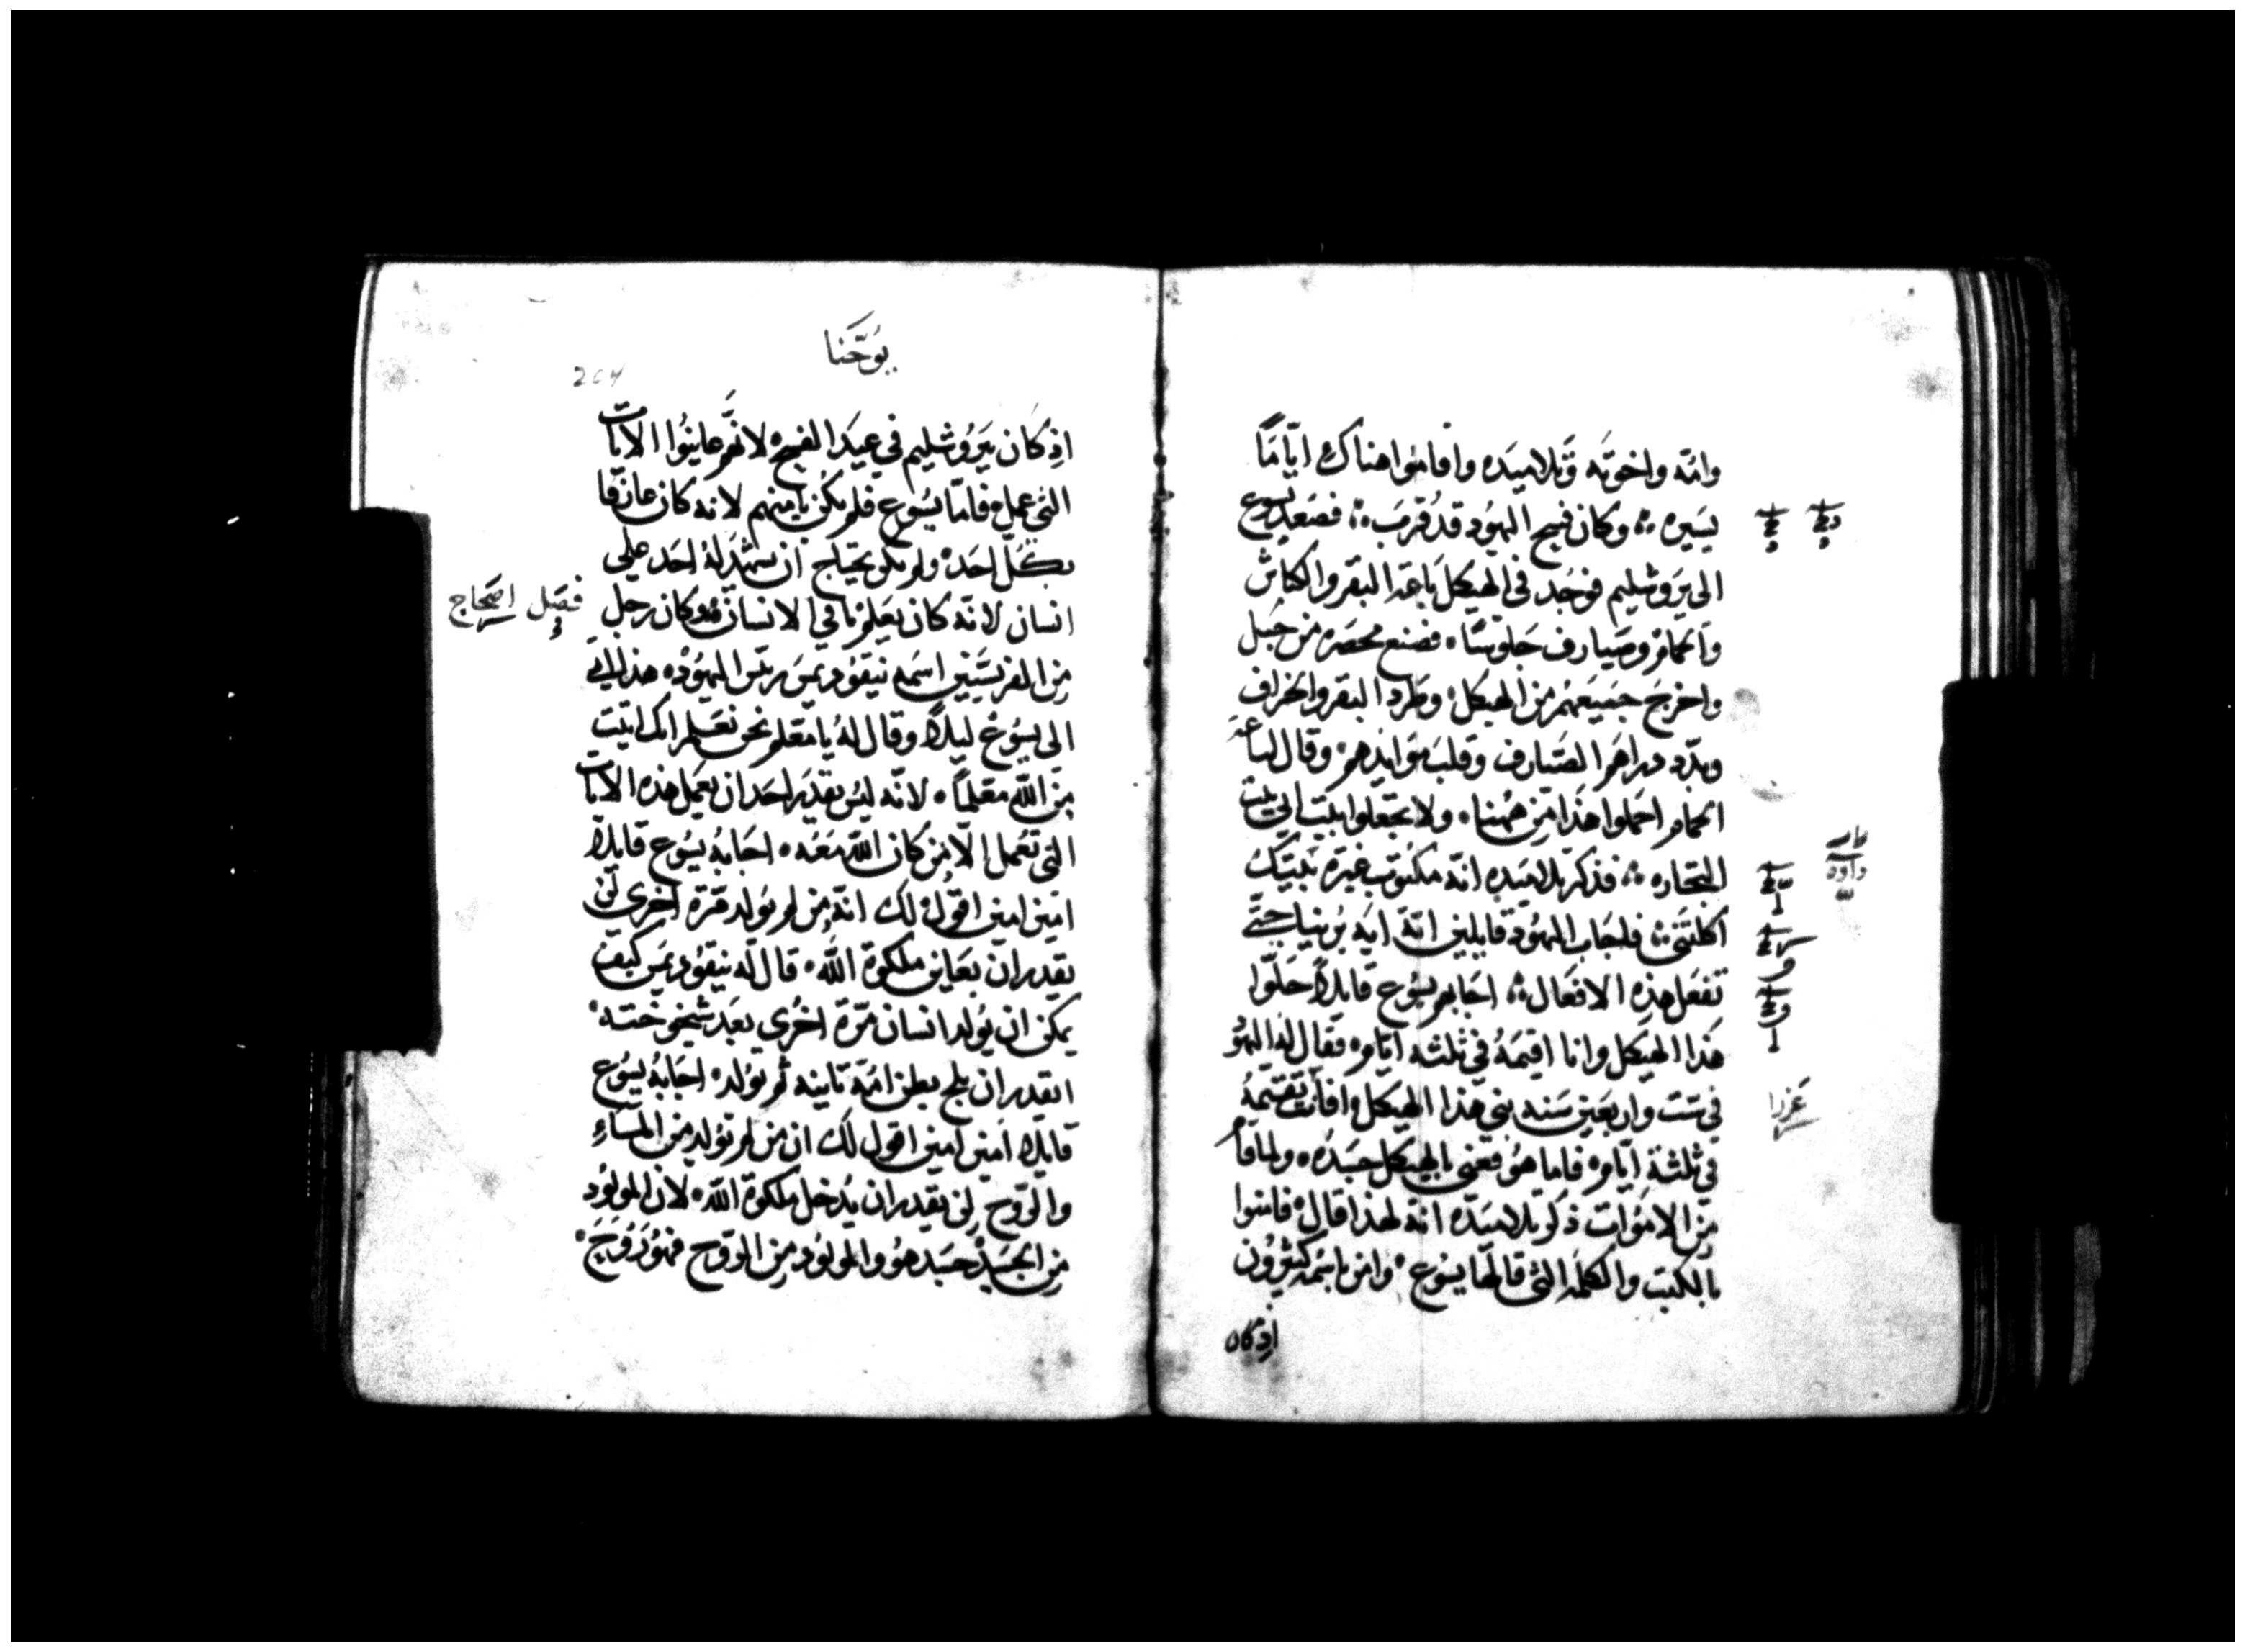 وامّه واخوته وتلاميذه واقاموا هناك ايّامًا
يسيره ۞ وكان فصح اليهود قد قرب ۞ فصعد يسوع
الى يروشليم فوجد في الهيكل باعة البقر والكباش
والحمام وصيارف جلوسًا ۰ فصنع محصرة من حبل
واخرج جميعهم من الهيكل ۰ وطرد البقر والخراف
وبدّد دراهم الصيارف وقلب موايدهم ۰ وقال لباعة
الحمام احملوا هذا من ههنا ۰ ولا تجعلوا بيت ابي بيت
التجاره ۞ فذكر تلاميذه انّه مكتوب غيرة بيتك
اكلتني ۞ فاجاب اليهود قايلين انّه ايه برنياج حتّى
تفعل هذه الافعال ۞ اجابهم يسوع قايلًا حلّوا
هذا الهيكل وانا اقيمه في ثلثه ايّام ۰ فقال له اليهو
في ستّ واربعين سنه بني هذا الهيكل ۰ افانت تقيمه
في ثلثة ايّام ۰ فاما هو فعنى بالهيكل جسده ۰ ولمّا قام
من الاموات ذكر تلاميذه انّه لهذا قال ۰ فامنوا
بالكتب والكلمه التي قالها يسوع ۰ وامن باسمه كثيرون
اذ كان
داود
عزرا
يوحّنا
204
اذ كان بيروشليم في عيد الفصح ۰ لانّهم عاينوا الايات
التي عمل ۰ فامّا يسوع فلم يكن يامنهم لانه كان عارفًا
بكلّ احد ۰ ولم يكن يحتاج ان يشهد له احد على
انسان لانّه كان يعلم ما في الانسان ۰ وكان رجل
فصل اصحاح
من الفريسيّين اسمه نيقوديمس ريّس اليهود ۰ هذا اتى
الى يسوع ليلًا وقال له يا معلم نحن نعلم انك اتيت
من الله معلمًا ۰ لانّه ليس يقدر احد ان يعمل هذه الايات
التي تعمل الّا من كان الله معه ۰ اجابه يسوع قايلًا
امين امين اقول لك انّه من لم يولد مرّة اخرى لن
يقدر ان يعاين ملكوة الله ۰ قال له نيقوديمس كيف
يمكن ان يولد انسان مرّة اخرى بعد شيخوخته ۰
ايقدر ان يلج بطن امّه ثانيه ثم يولد ۰ اجابه يسوع
قايلًا امين امين اقول لك ان من لم يولد من الماء
والروح لن يقدر ان يدخل ملكوة الله ۰ لان المولود
من الجسد جسد هو والمولود من الروح فهو روح ۰